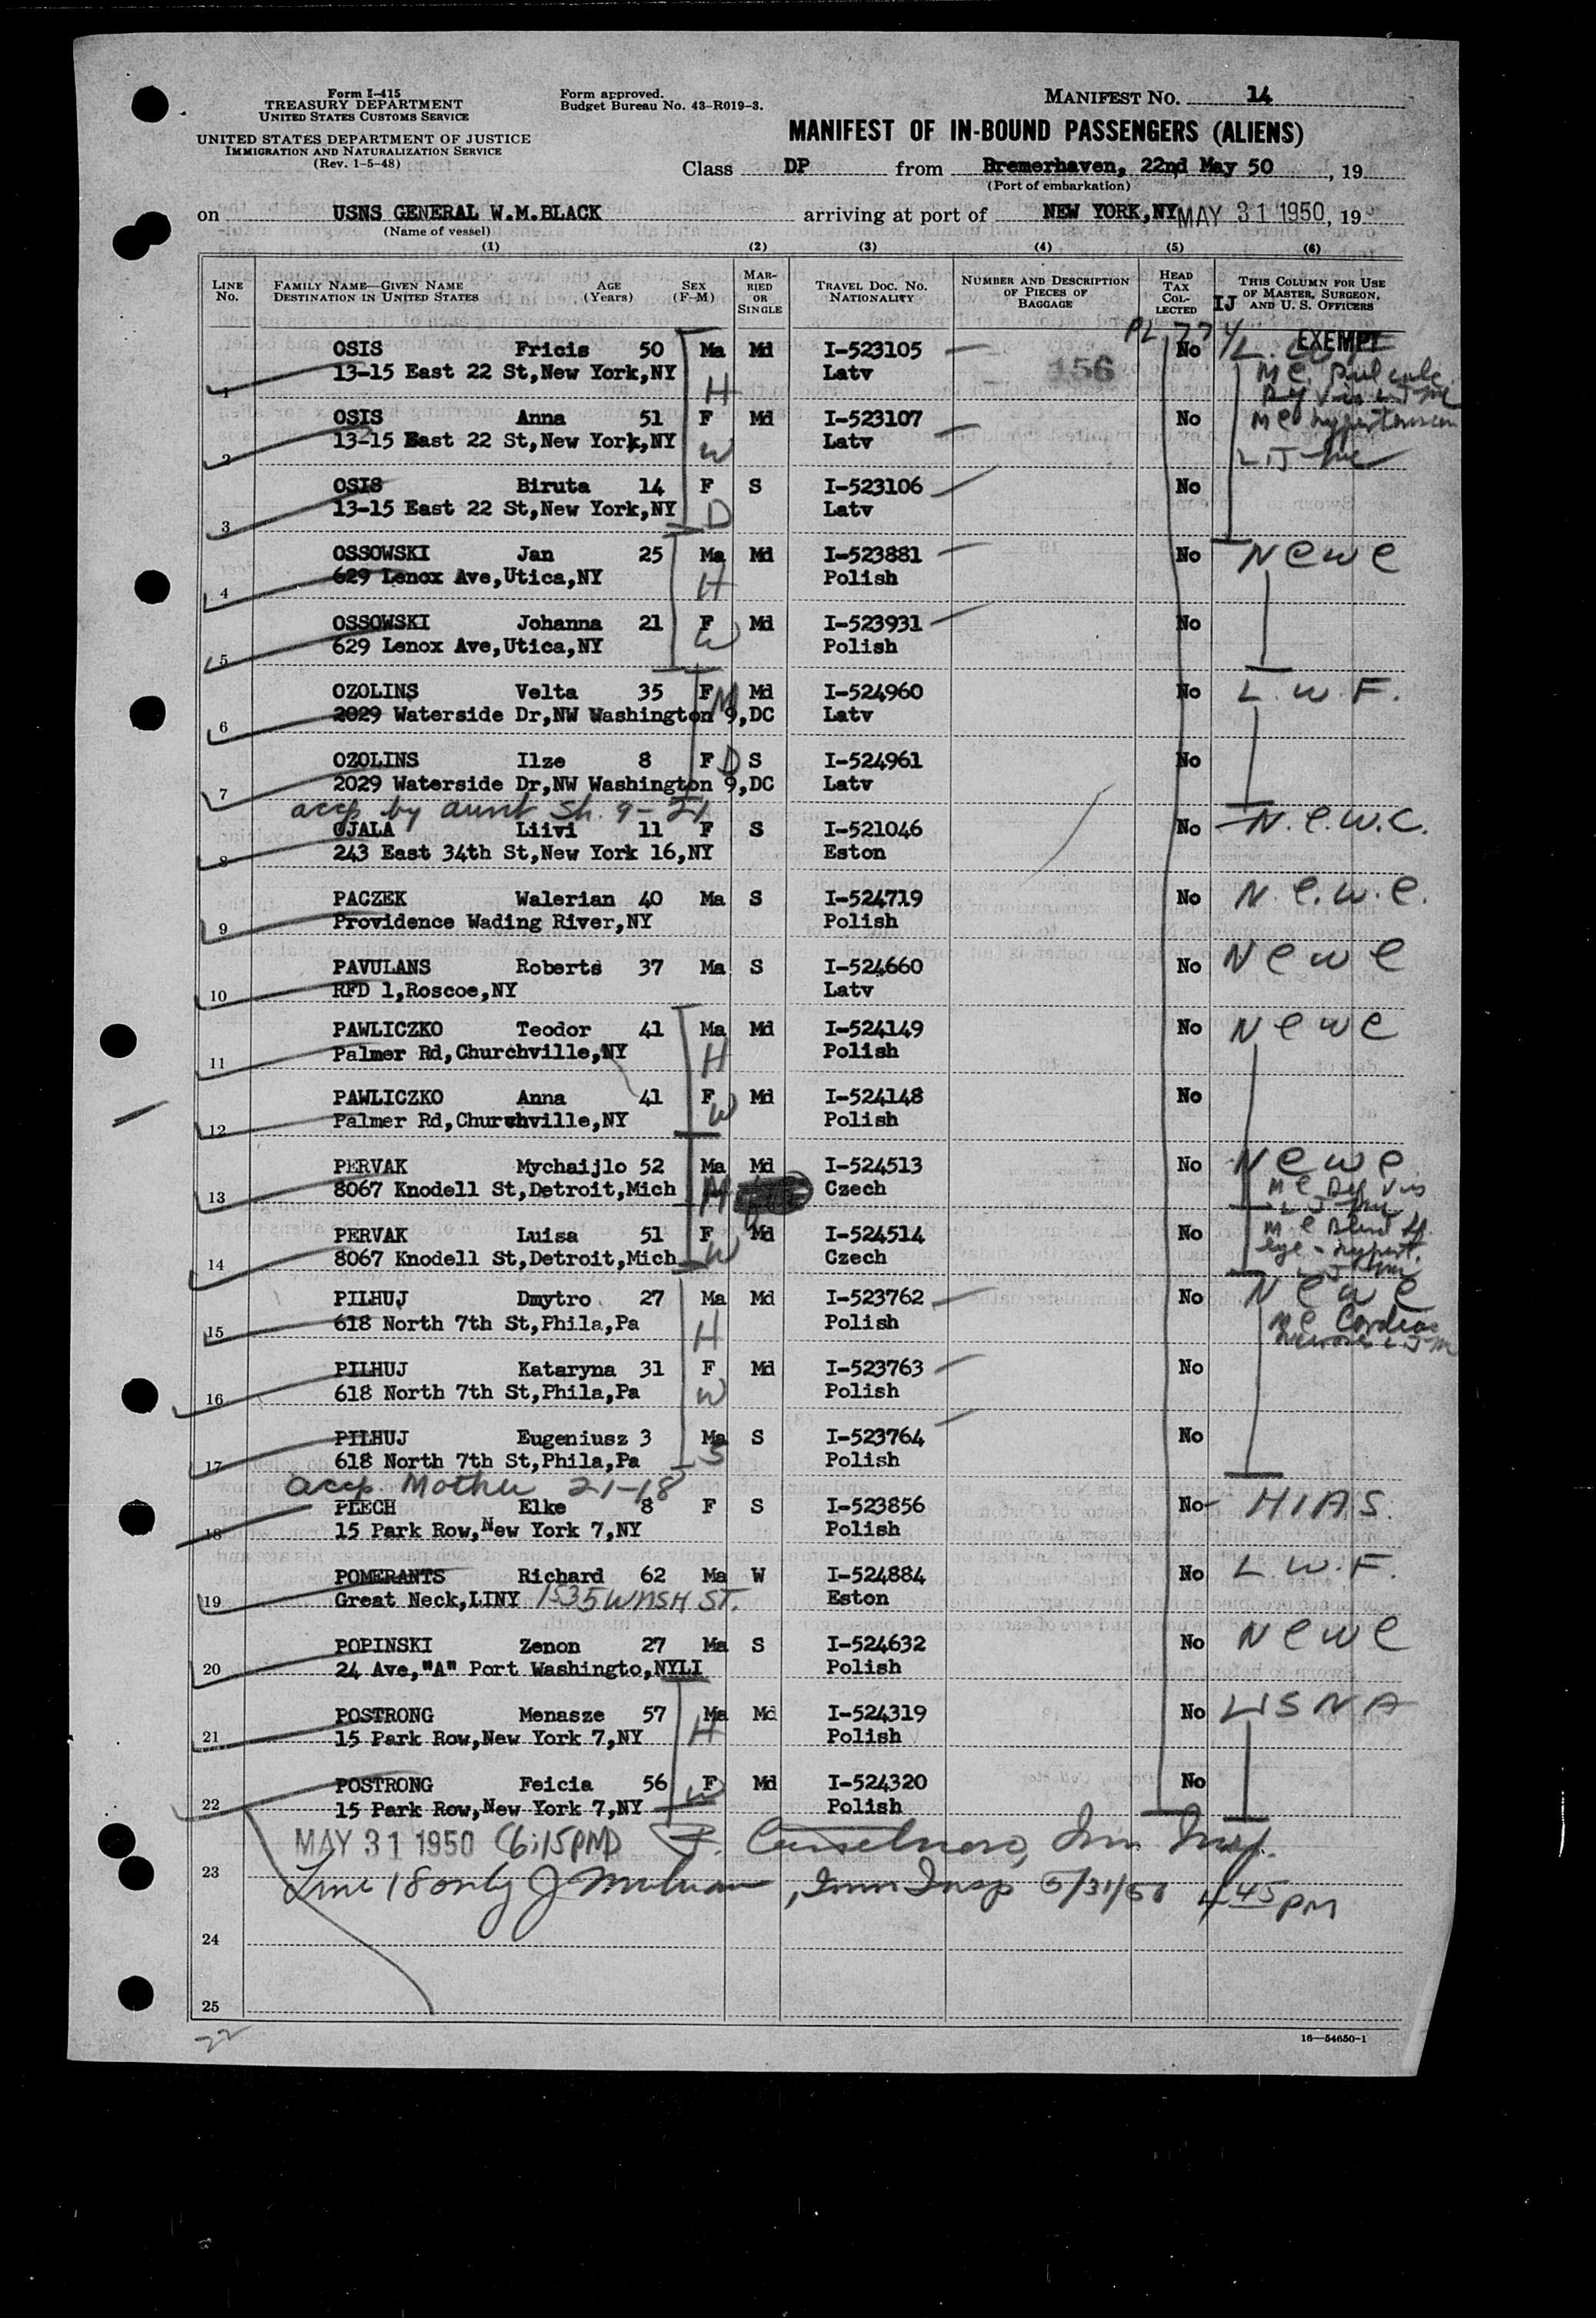 Form I-415
TREASURY DEPARTMENT
UNITED STATES CUSTOMS SERVICE
UNITED STATES DEPARTMENT OF JUSTICE
IMMIGRATION AND NATURALIZATION SERVICE
(Rev. 1-5-48)
Form approved.
Budget Bureau No. 43-R019-3.
MANIFEST NO. 14
MANIFEST OF IN-BOUND PASSENGERS (ALIENS)
Class DP from Bremerhaven, 22nd May 50, 19
(Port of embarkation)
on USNS GENERAL W.M.BLACK arriving at port of NEW YORK,NY MAY 31 1950, 19
(Name of vessel)
(1) (2) (3) (4) (5) (6)
LINE No. FAMILY NAME—GIVEN NAME DESTINATION IN UNITED STATES AGE (Years) SEX (F-M) MARRIED OR SINGLE TRAVEL DOC. NO. NATIONALITY NUMBER AND DESCRIPTION OF PIECES OF BAGGAGE HEAD TAX COLLECTED IJ THIS COLUMN FOR USE OF MASTER, SURGEON, AND U. S. OFFICERS
PL 774 EXEMPT
OSIS Fricis 50 Ma Md I-523105 156 No
1 13-15 East 22 St,New York,NY H Latv
OSIS Anna 51 F Md I-523107 No Me hypertension
2 13-15 East 22 St,New York,NY W Latv
OSIS Biruta 14 F S I-523106 No
3 13-15 East 22 St,New York,NY D Latv
OSSOWSKI Jan 25 Ma Md I-523881 No NCWC
4 629 Lenox Ave,Utica,NY H Polish
OSSOWSKI Johanna 21 F Md I-523931 No
5 629 Lenox Ave,Utica,NY W Polish
OZOLINS Velta 35 F M Md I-524960 No L.W.F.
6 2029 Waterside Dr,NW Washington 9,DC Latv
OZOLINS Ilze 8 F D S I-524961 No
7 2029 Waterside Dr,NW Washington 9,DC Latv
accp by aunt Sh. 9-21
OJALA Liivi 11 F S I-521046 No N.C.W.C.
8 243 East 34th St,New York 16,NY Eston
PACZEK Walerian 40 Ma S I-524719 No N.C.W.C.
9 Providence Wading River,NY Polish
PAVULANS Roberts 37 Ma S I-524660 No NCWC
10 RFD 1,Roscoe,NY Latv
PAWLICZKO Teodor 41 Ma Md I-524149 No NCWC
11 Palmer Rd,Churchville,NY H Polish
PAWLICZKO Anna 41 F Md I-524148 No
12 Palmer Rd,Churchville,NY W Polish
PERVAK Mychaijlo 52 Ma Md I-524513 No NCWC
13 8067 Knodell St,Detroit,Mich Czech
PERVAK Luisa 51 F Md I-524514 No
14 8067 Knodell St,Detroit,Mich W Czech
PILHUJ Dmytro 27 Ma Md I-523762 No NCWC
15 618 North 7th St,Phila,Pa H Polish
PILHUJ Kataryna 31 F Md I-523763 No
16 618 North 7th St,Phila,Pa W Polish
PILHUJ Eugeniusz 3 Ma S I-523764 No
17 618 North 7th St,Phila,Pa S Polish
accp. Mother 21-18
PLECH Elke 8 F S I-523856 No HIAS.
18 15 Park Row,New York 7,NY Polish
POMERANTS Richard 62 Ma W I-524884 No L.W.F.
19 Great Neck,LINY 1535 WNSH ST. Eston
POPINSKI Zenon 27 Ma S I-524632 No NCWC
20 24 Ave,"A" Port Washingto,NYLI Polish
POSTRONG Menasze 57 Ma Md I-524319 No USNA
21 15 Park Row,New York 7,NY H Polish
POSTRONG Feicia 56 F Md I-524320 No
22 15 Park Row,New York 7,NY W Polish
MAY 31 1950 (6:15PM) Imm Insp.
23 Line 18 only J , Imm Insp 5/31/50 4 45 PM
24
25
22
16—54650-1